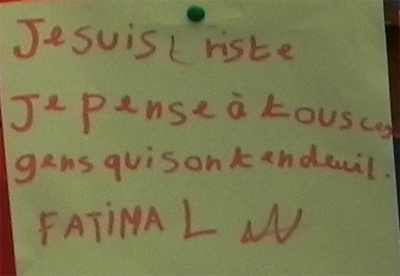 Je suis triste
Je pense à tous ces
gens qui sont en deuil.
FATIMA L